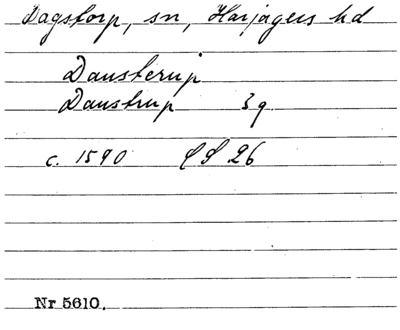 Dagstorp, sn, Harjagers hd
Dausterup
Daustrup 3 g
c. 1590 LS 26
Nr 5610.